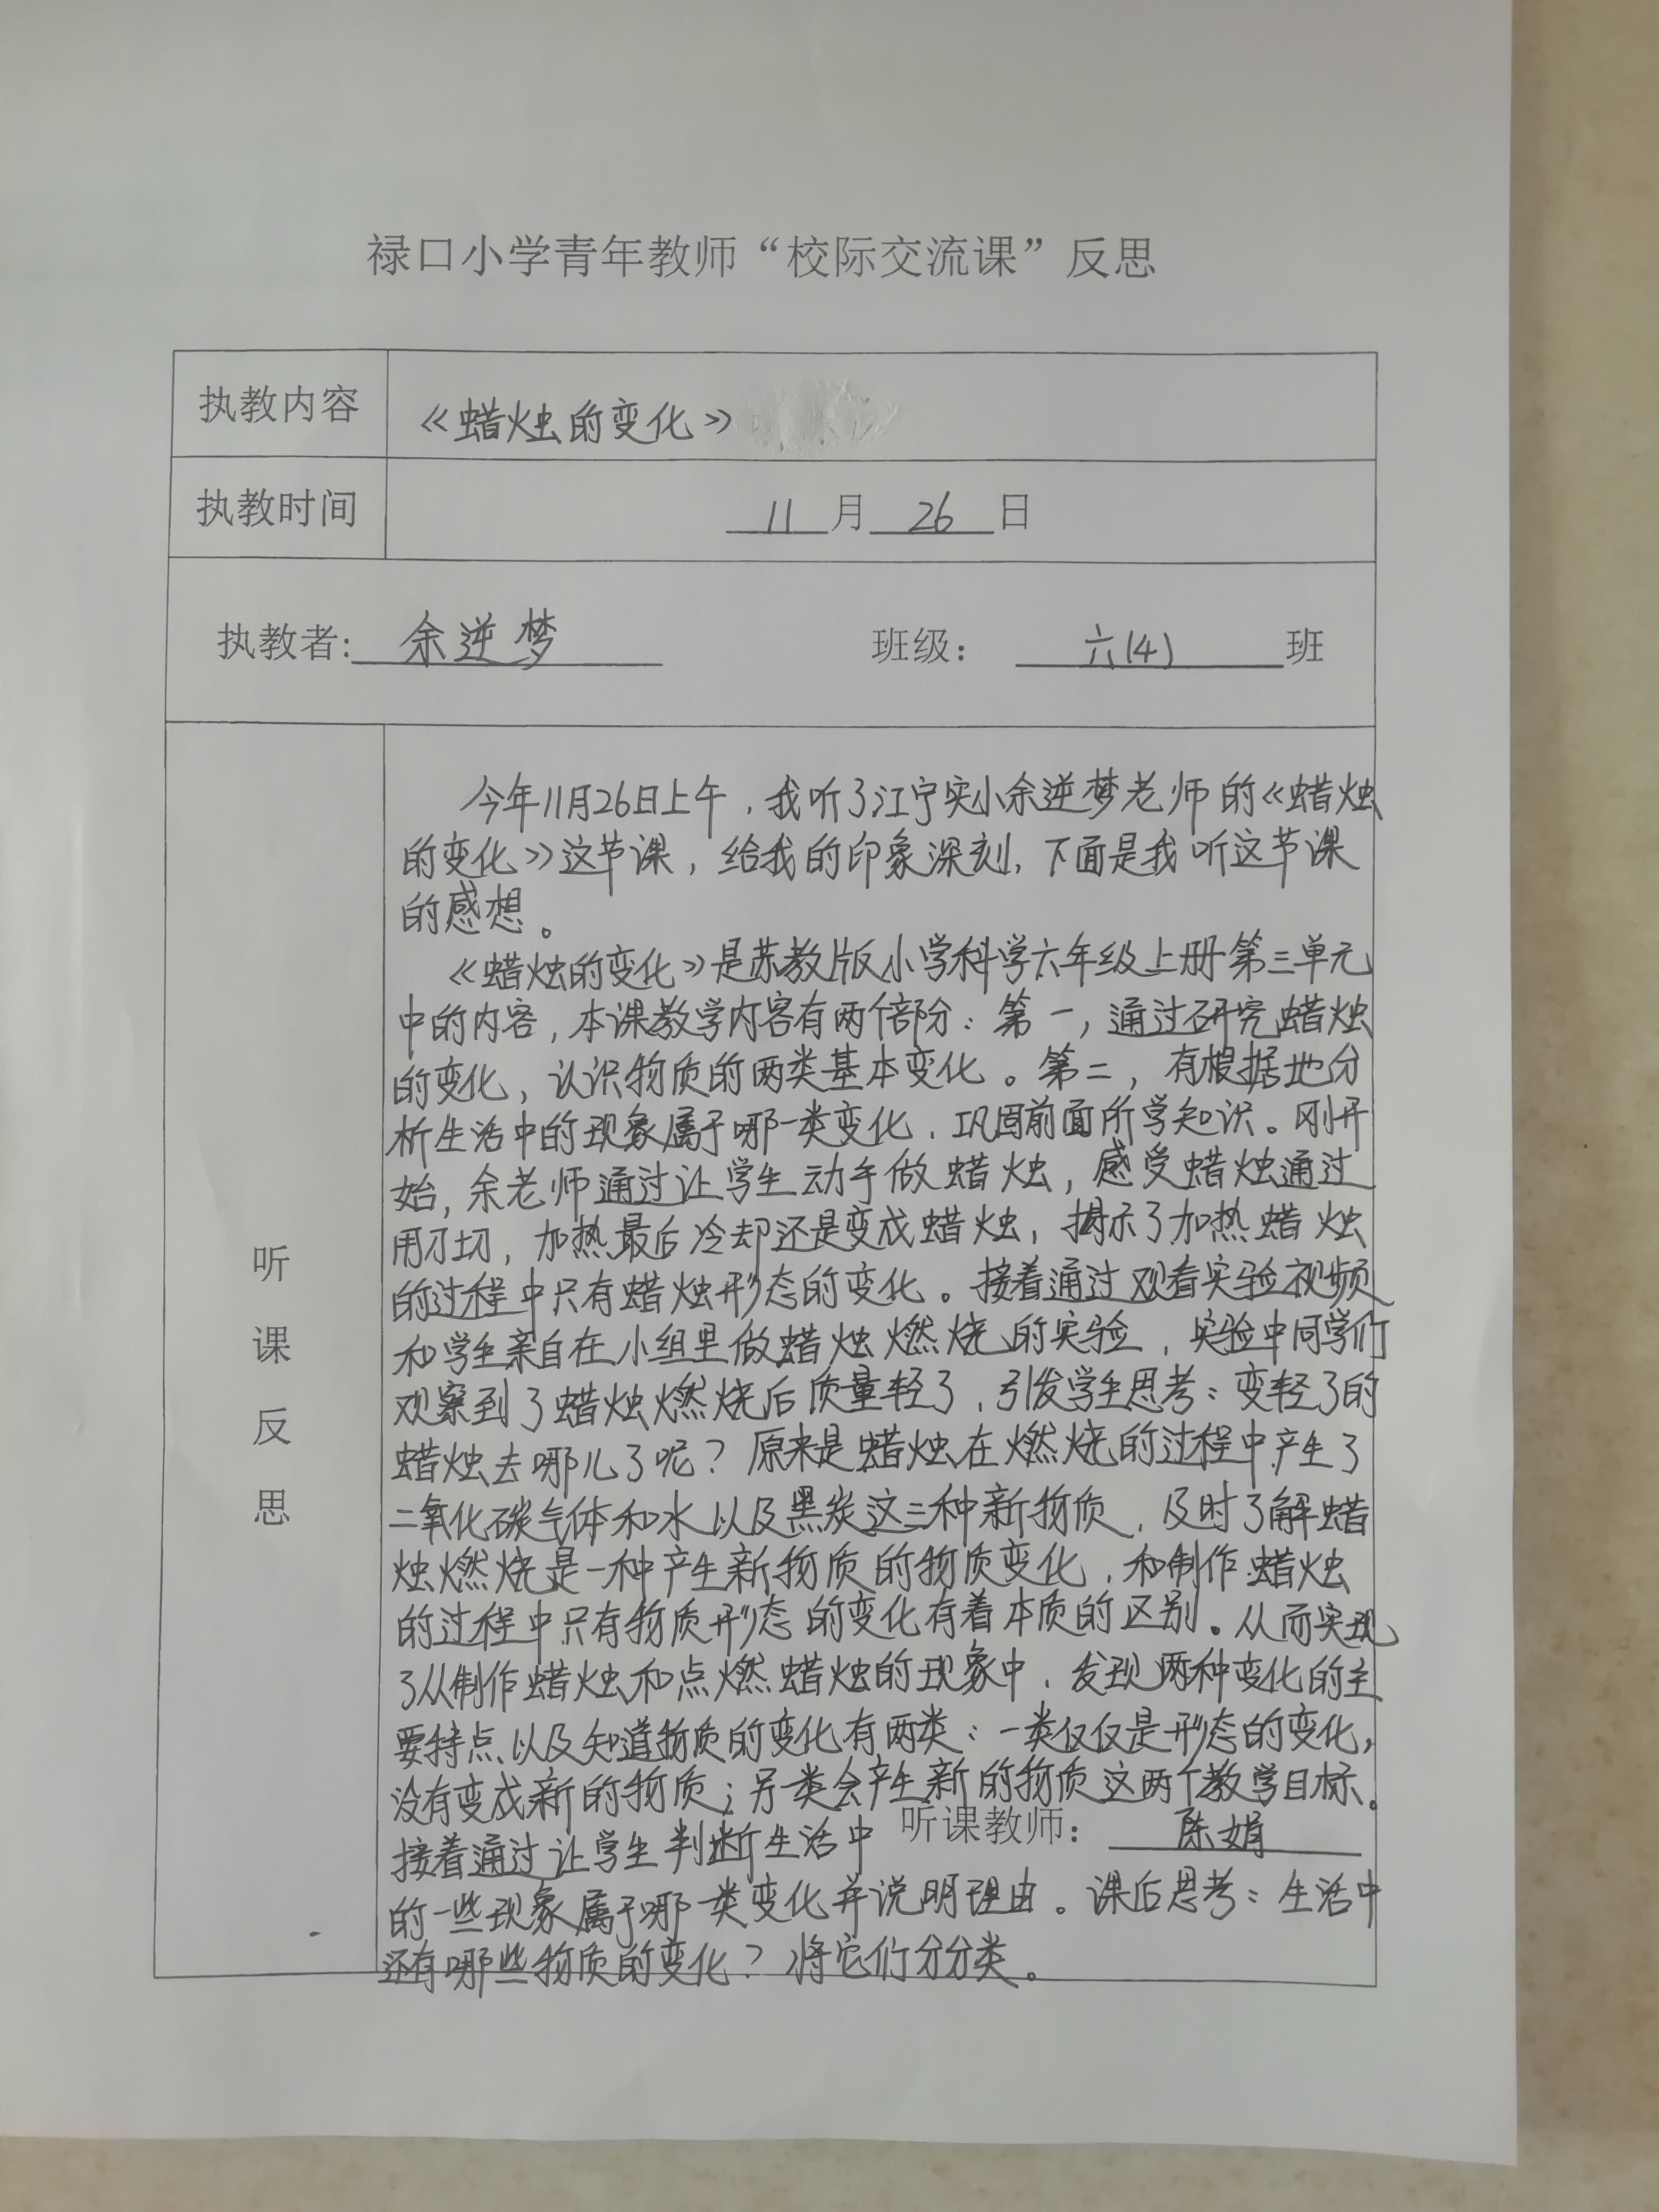 禄口小学青年教师“校际交流课”反思
执教内容
《蜡烛的变化》
执教时间
11月26日
执教者:余逆梦 班级：六(4)班
听课反思
今年11月26日上午，我听了江宁实小余逆梦老师的《蜡烛
的变化》这节课，给我的印象深刻，下面是我听这节课
的感想。
《蜡烛的变化》是苏教版小学科学六年级上册第三单元
中的内容，本课教学内容有两个部分：第一，通过研究蜡烛
的变化，认识物质的两类基本变化。第二，有根据地分
析生活中的现象属于哪一类变化，巩固前面所学知识。刚开
始，余老师通过让学生动手做蜡烛，感受蜡烛通过
用刀切，加热最后冷却还是变成蜡烛，揭示了加热蜡烛
的过程中只有蜡烛形态的变化。接着通过观看实验视频
和学生亲自在小组里做蜡烛燃烧的实验，实验中同学们
观察到了蜡烛燃烧后质量轻了，引发学生思考：变轻了的
蜡烛去哪儿了呢？原来是蜡烛在燃烧的过程中产生了
二氧化碳气体和水以及黑炭这三种新物质，及时了解蜡
烛燃烧是一种产生新物质的物质变化，和制作蜡烛
的过程中只有物质形态的变化有着本质的区别。从而实现
了从制作蜡烛和点燃蜡烛的现象中，发现两种变化的主
要特点以及知道物质的变化有两类：一类仅仅是形态的变化，
没有变成新的物质；另一类会产生新的物质这两个教学目标。
接着通过让学生判断生活中
听课教师：陈娟
的一些现象属于哪一类变化并说明理由。课后思考：生活中
还有哪些物质的变化？将它们分分类。